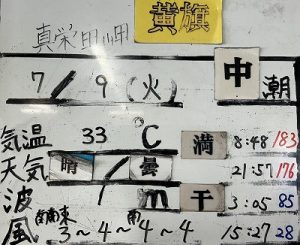 黄旗
真栄田岬
7/9(火) 中潮
気温 33 ℃ 満 8:48 183
天気 晴/曇 21:57 176
波 1m 干 3:05 85
風 南南東 3~4~南4~4 15:27 28